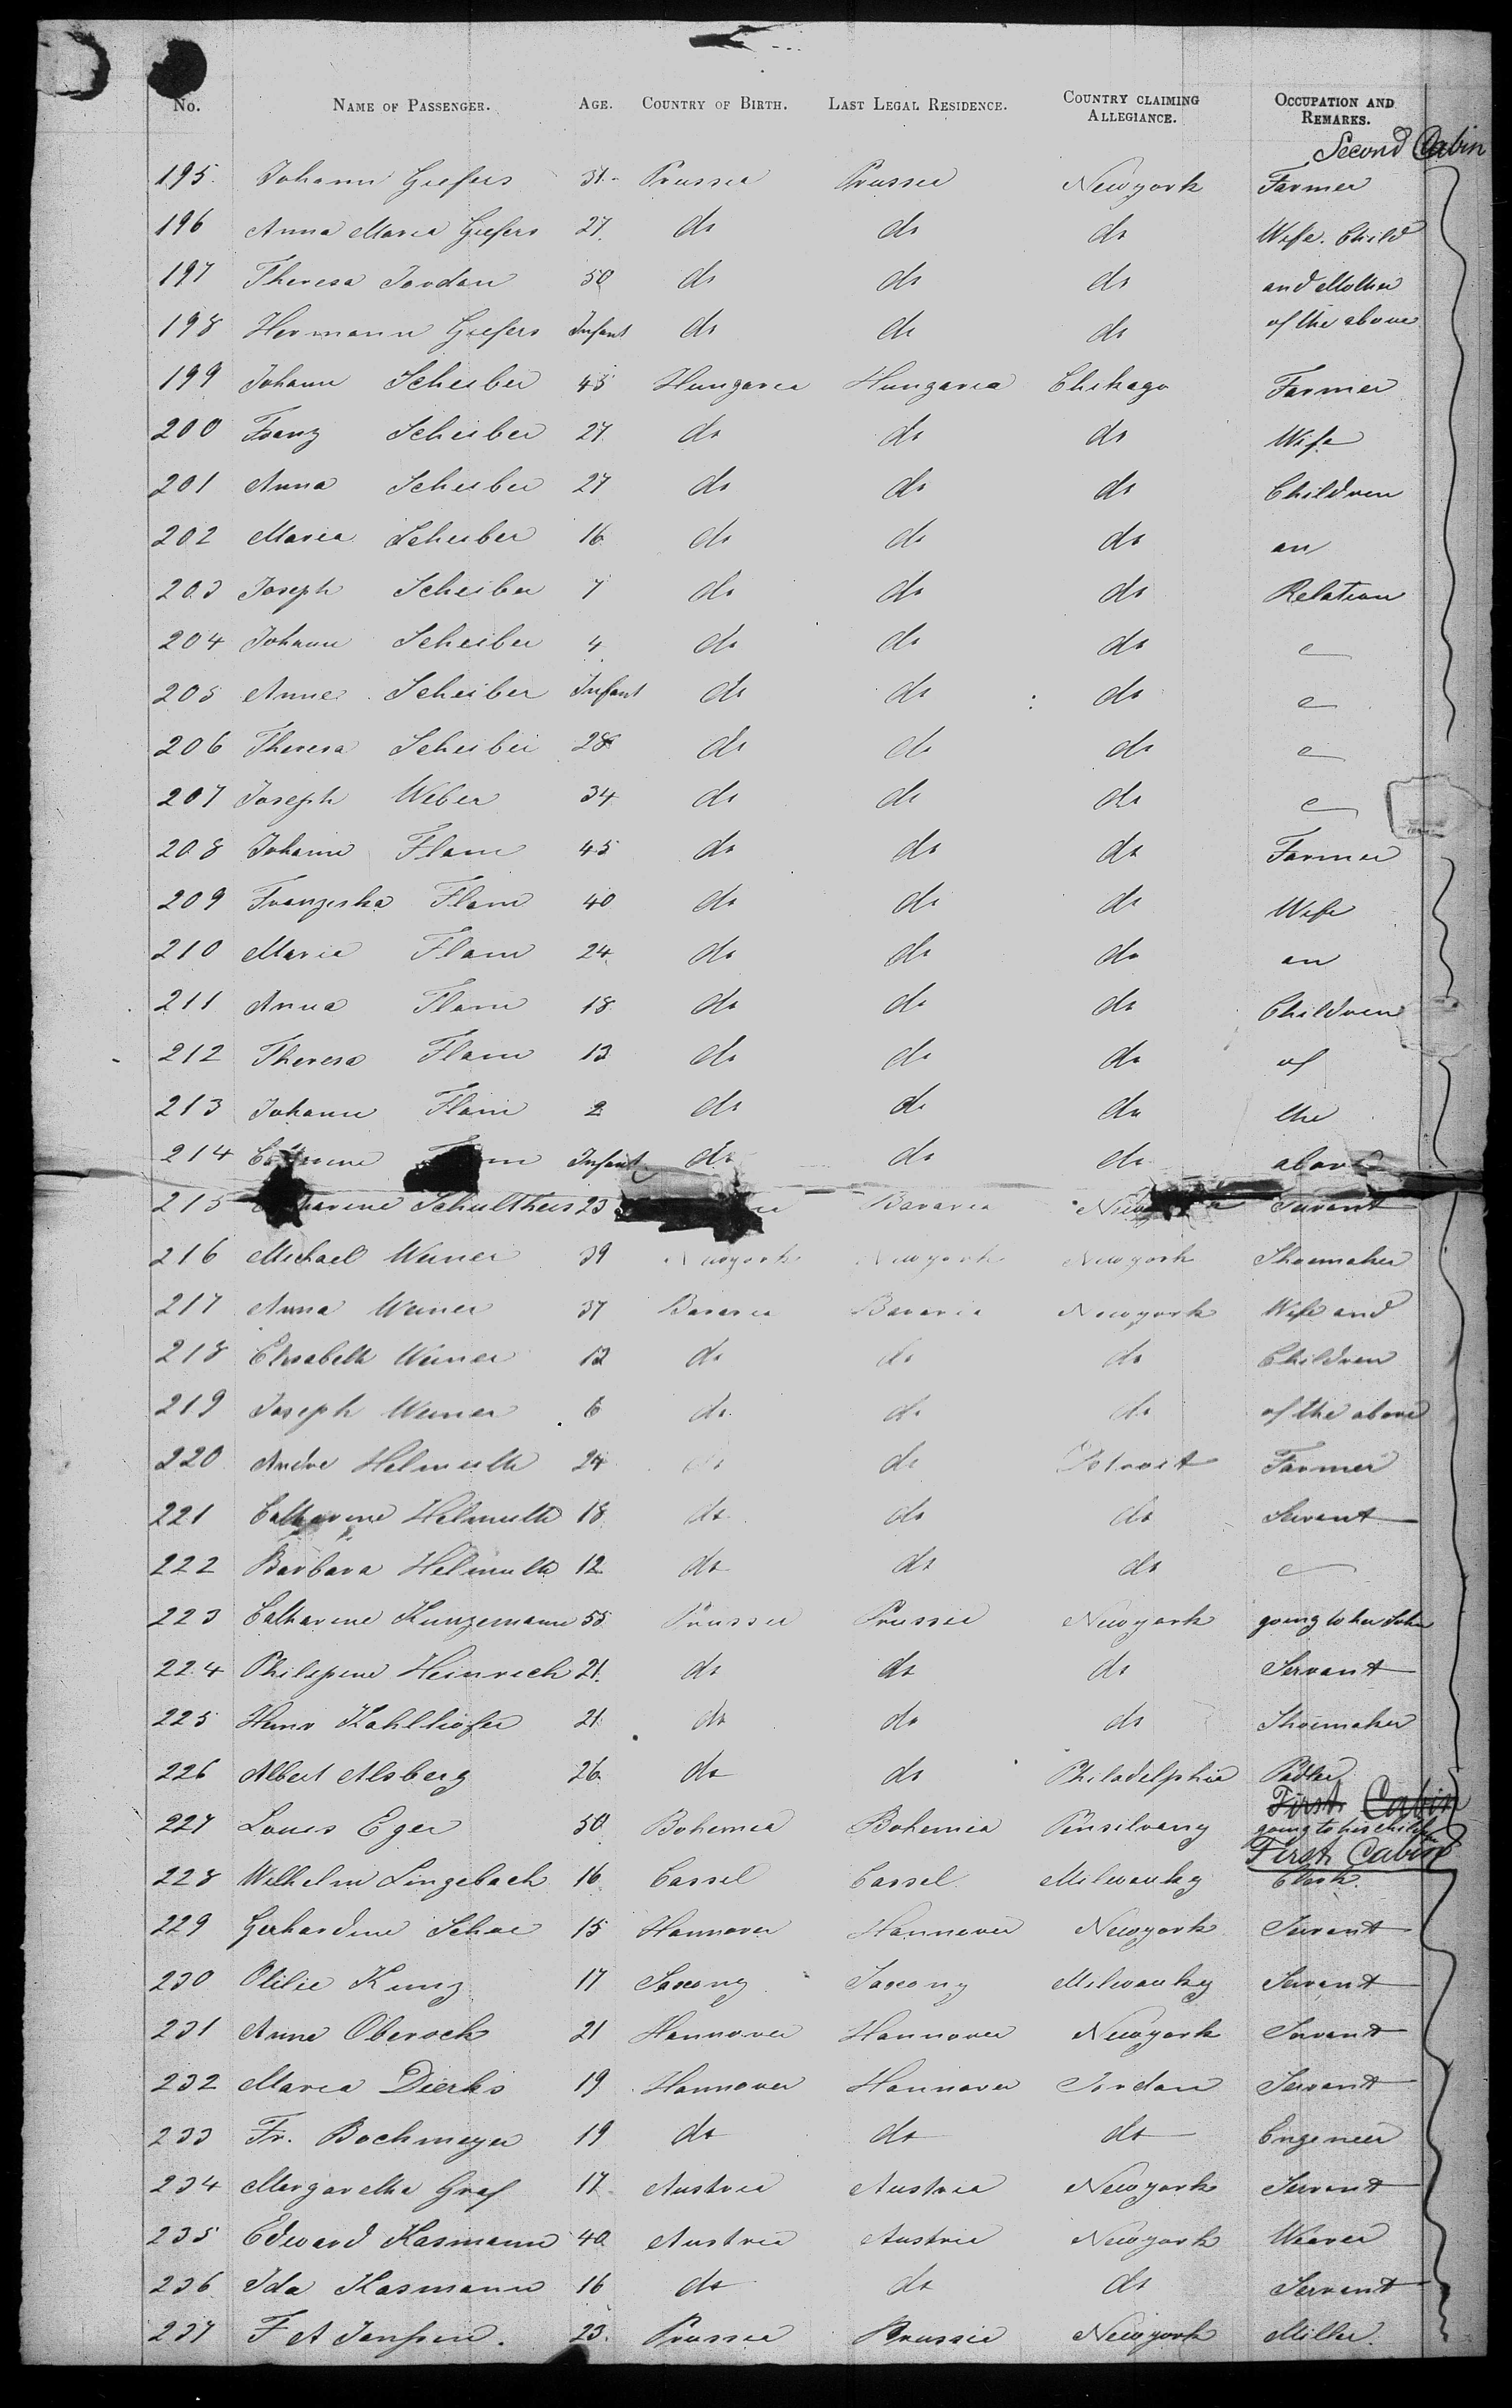 No. NAME OF PASSENGER. AGE. COUNTRY OF BIRTH. LAST LEGAL RESIDENCE. COUNTRY CLAIMING ALLEGIANCE. OCCUPATION AND REMARKS.
Second Cabin
195. Johann Giefers 31. Prussia Prussia Newyork Farmer
196 Anna Maria Giefers 27. do do do Wife. Child
197 Theresa Jordan 50 do do do and Mother
198 Hermann Giefers Infant do do do of the above
199 Johann Scheiber 45 Hungaria Hungaria Chikago Farmer
200 Franz Scheiber 27. do do do Wife
201 Anna Scheiber 27 do do do Children
202 Maria Scheiber 16 do do do an
203 Joseph Scheiber 7 do do do Relation
204 Johann Scheiber 4 do do do
205 Anne Scheiber Infant do do do
206 Theresa Scheiber 28 do do do
207 Joseph Weber 34 do do do
208 Johann Flam 45 do do do Farmer
209 Franziska Flam 40 do do do Wife
210 Maria Flam 24 do do do an
211 Anna Flam 18 do do do Children
212 Theresa Flam 13 do do do of
213 Johann Flam 2 do do do the
214 Infant do do do above
215 Schultheis 23 Bavaria Servant
216 Michael Weiner 39 Newyork Newyork Newyork Shoemaker
217 Anna Weiner 37 Bavaria Bavaria Newyork Wife and
218 Elisabeth Weiner 12 do do do Children
219 Joseph Weiner 6 do do do of the above
220 Andre Helmuth 24 do do Detroit Farmer
221 Catharine Helmuth 18 do do do Servant
222 Barbara Helmuth 12 do do do
223 Catharine Kunzemann 55 Prussia Prussia Newyork going to her
224 Philipine Heinrich 21. do do do Servant
225 Kahlhöfer 21 do do do Shoemaker
226 Albert Alsberg 26 do do Philadelphia Pedler
First Cabin
227 Louis Eger 50 Bohemia Bohemia Pensilvany going to his
First Cabin
228 Wilhelm Lingebach 16 Cassel Cassel Milwauky Clerk.
229 Gerhardine 15 Hannover Hannover Newyork Servant
230 Otilie Kunz 17 Saxony Saxony Milwauky Servant
231 Anna Oberock 21 Hannover Hannover Newyork Servant
232 Maria Dierks 19 Hannover Hannover Jordan Servant
233 Fr. Bochmeyer 19 do do do Engeneer
234 Margaretha Graf 17 Austria Austria Newyork Servant
235 Edward Kasmann 40 Austria Austria Newyork Weaver
236 Ida Kasmann 16 do do do Servant
237 F A Janssen. 23. Prussia Prussia Newyork Miller.